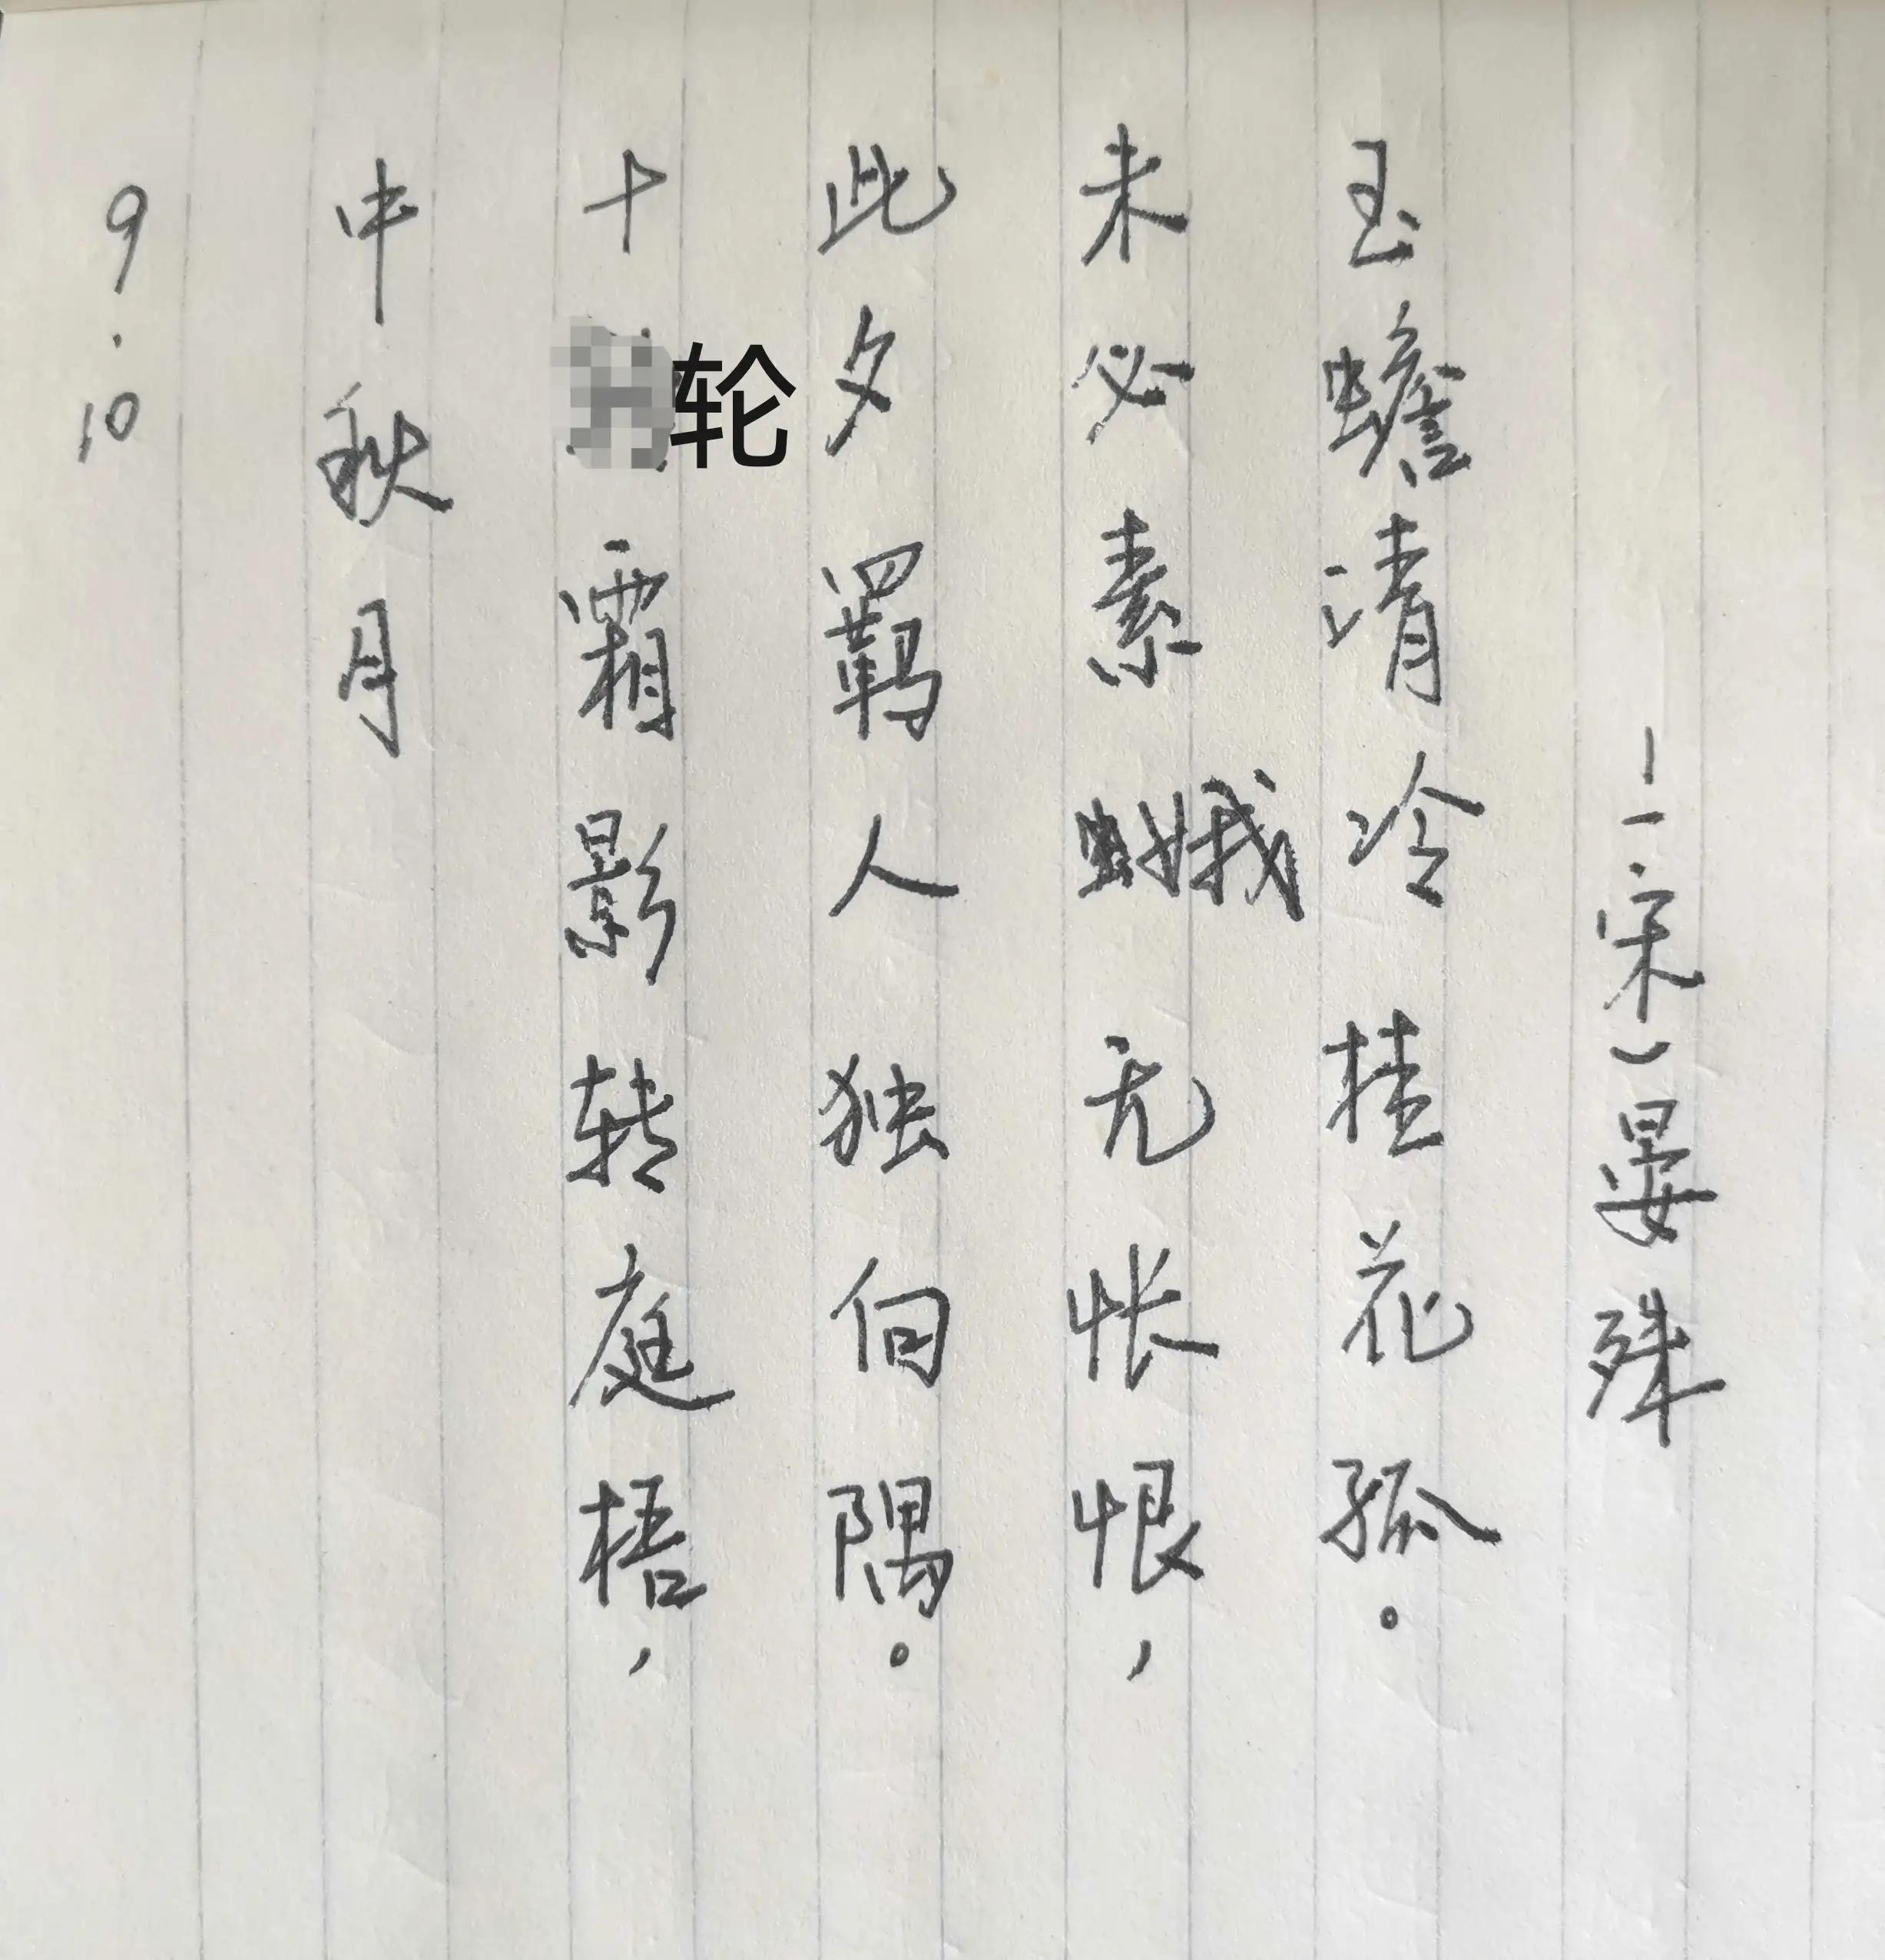 9.10
中秋月
十轮霜影转庭梧，
此夕羁人独向隅。
未必素娥无怅恨，
玉蟾清冷桂花孤。
——(宋)晏殊